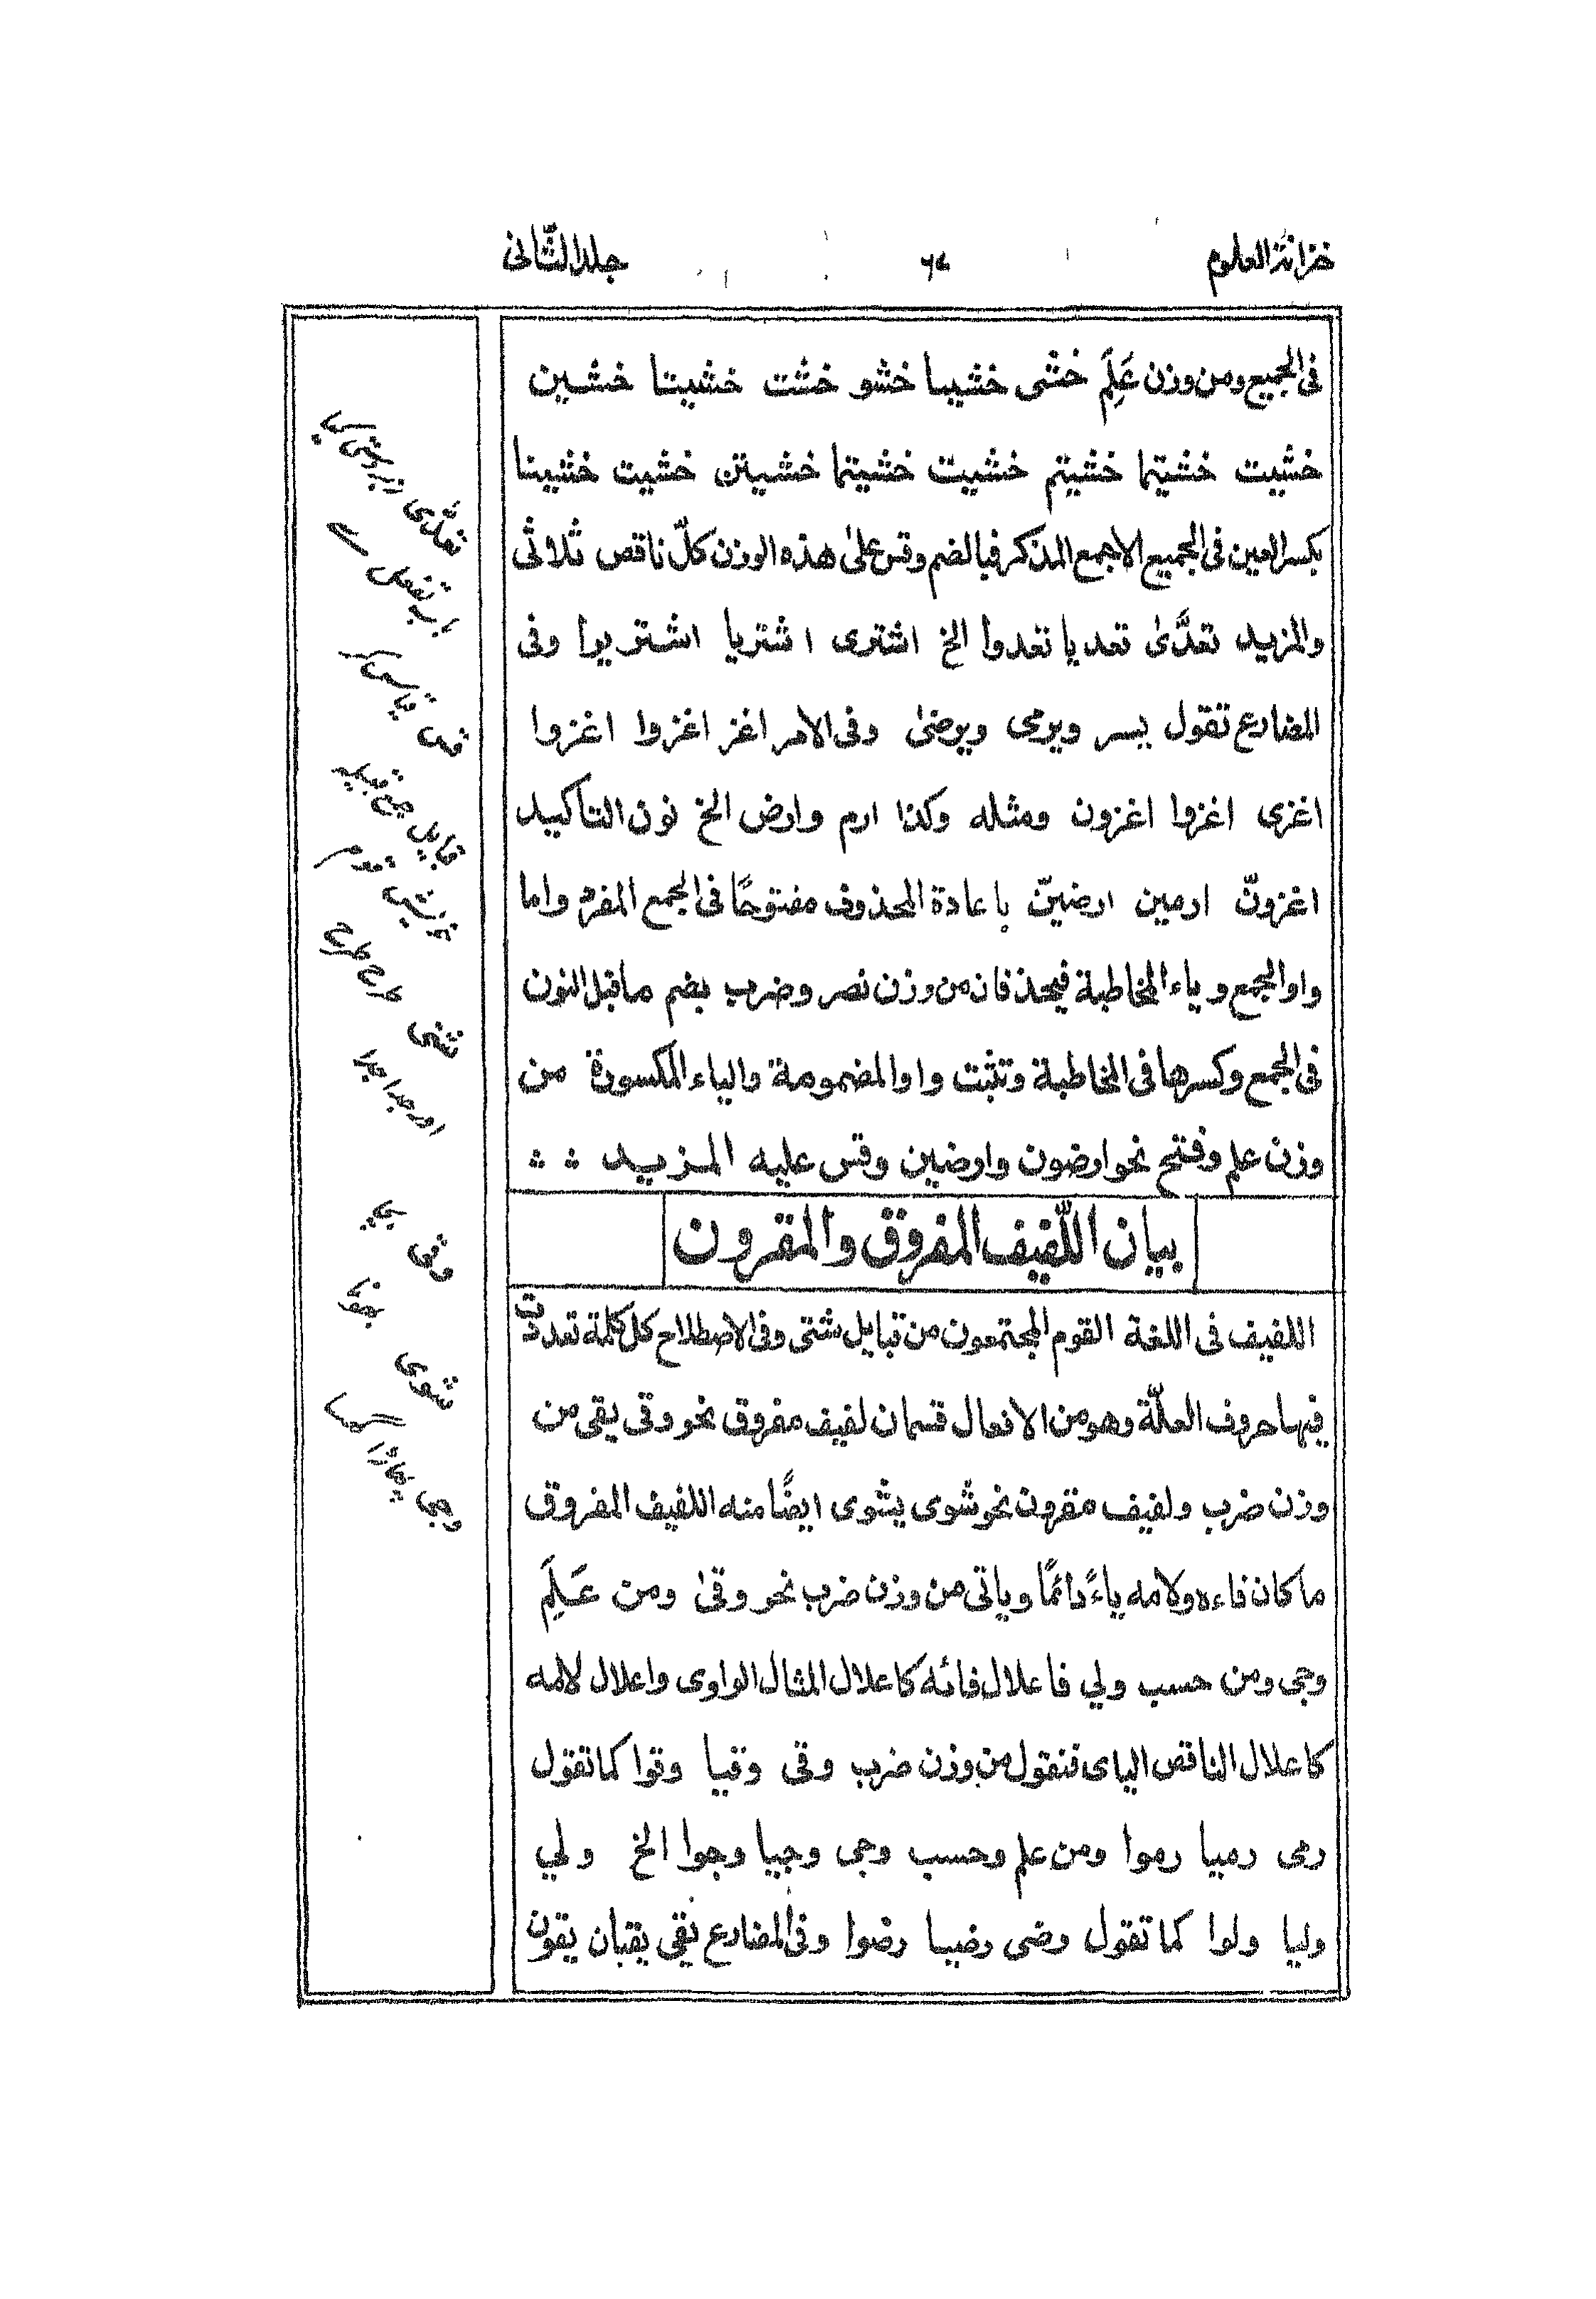 خزانة العلوم
٦٧
جلد الثّانى
فى الجميع ومن وزن عَلِمَ خشى خشيا خشو خشت خشيتا خشين
خشيت خشيتما خشيتم خشيت خشيتما خشيتن خشيت خشينا
بكسر العين فى الجميع الا جمع المذكر فبالضم وقس علىٰ هذه الوزن كلّ ناقص ثلاثى
والمزيد تعدّىٰ تعديا تعدوا الخ اشترى اشتريا اشتريوا وفى
المضارع تقول يسر ويرمى ويرضىٰ وفى الامر اغز اغزوا اغزوا
اغزى اغزوا اغزون ومثله وكذا ارم وارض الخ نون التاكيد
اغزونّ ارمين ارضينّ باعادة المحذوف مفتوحًا فى الجمع المفرد واما
واو الجمع وياء المخاطبة فيحذفان من وزن نصر وضرب بضم ماقبل النون
فى الجمع وكسرها فى المخاطبة وتثبت واو المضمومة والياء المكسورة من
وزن علم وفتح نحو ارضون وارضين وقس عليه المزيد
بيان اللّفيف المفروق والمقرون
اللفيف فى اللغة القوم المجتمعون من قبايل شتى وفى الاصطلاح كل كلمة تعددت
فيها حروف العلّة وهو من الافعال قسمان لفيف مفروق نحو وقى يقى من
وزن ضرب ولفيف مقرون نحو شوى يشوى ايضًا منه اللفيف المفروق
ما كان فاءه ولامه ياءً دائمًا وياتى من وزن ضرب نحو وقىٰ ومن عَلِمَ
وجى ومن حسب ولي فاعلال فائه كاعلال المثال الواوى واعلال لامه
كاعلال الناقص الياى فتقول من وزن ضرب وقى وقيا وقوا كما تقول
رمى رميا رموا ومن علم وحسب وجى وجيا وجوا الخ ولي
وليا ولوا كما تقول رضى رضيا رضوا وفى المضارع يقى يقيان يقون
تعدّى
باب تفعل سے
قس قیاس کر
قبایل جمع قبیلہ
شتى
اور جدا جدا
وقى
شوى
وجى